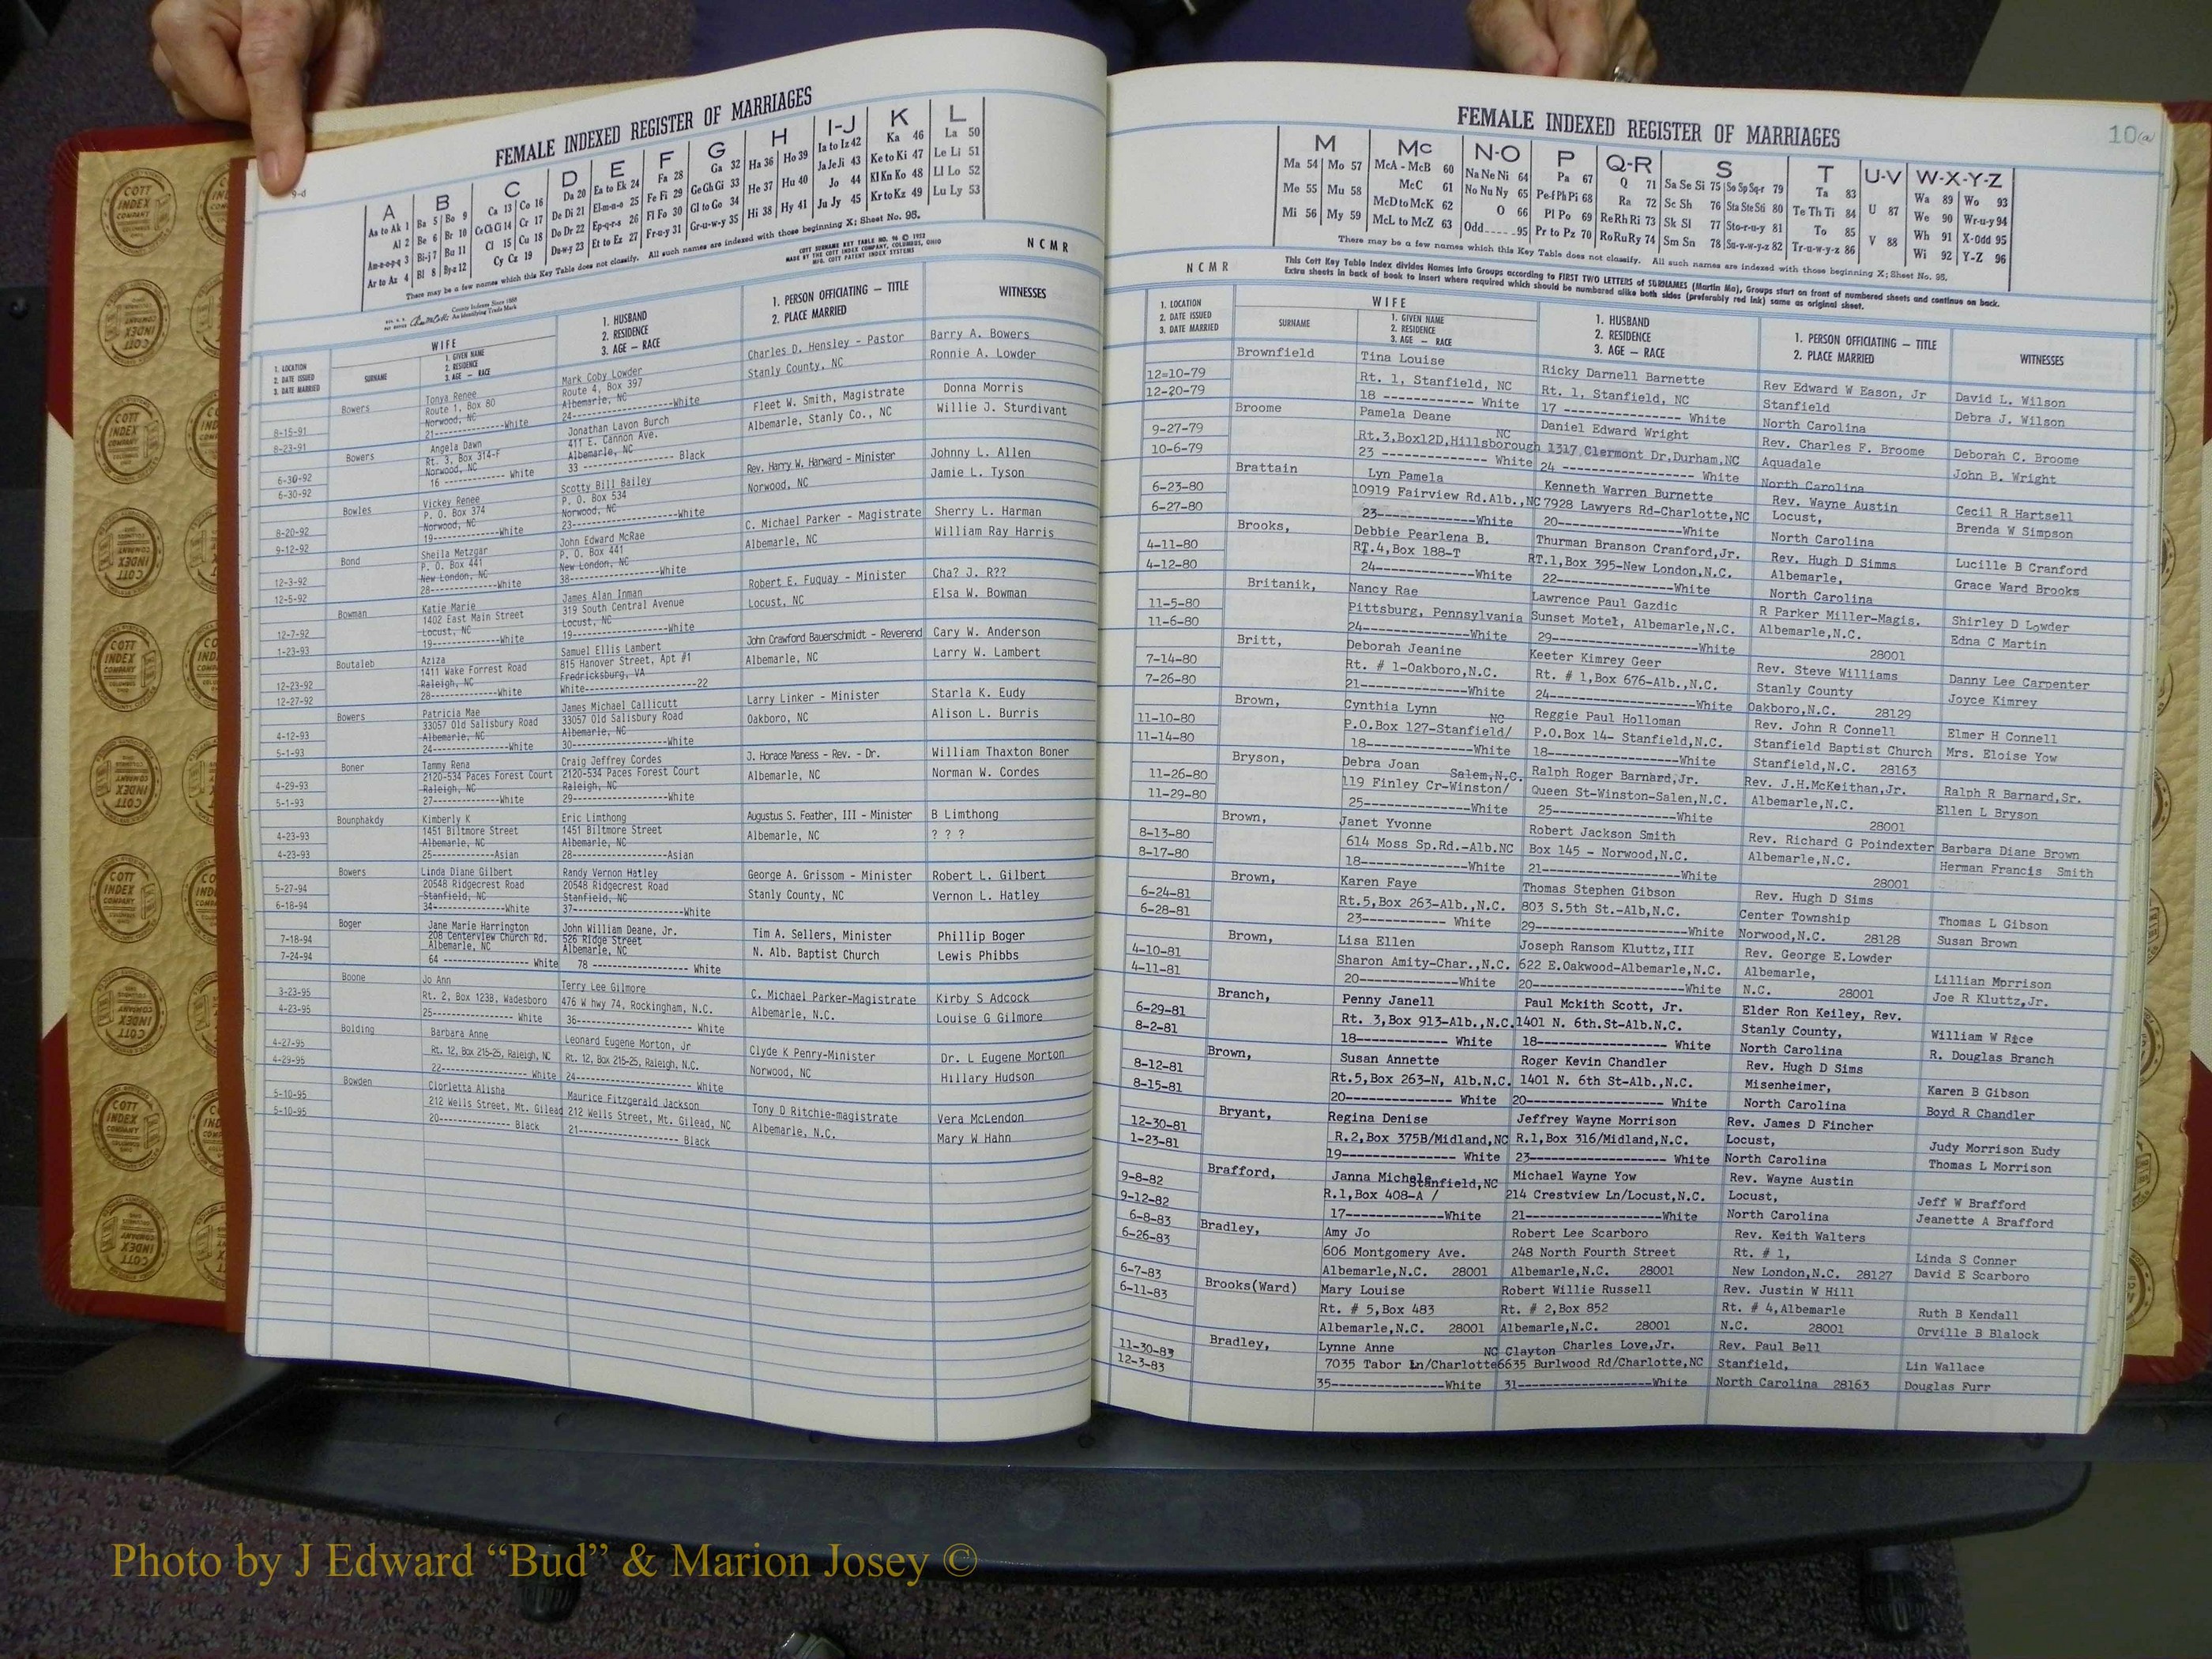 FEMALE INDEXED REGISTER OF MARRIAGES
9-d
A B C D E F G H I-J K L
Aa to Ak 1 Ba 5 Bo 9 Ca 13 Co 16 Da 20 Ea to Ek 24 Fa 28 Ga 32 Ha 36 Ho 39 Ia to Iz 42 Ka 46 La 50
Al 2 Be 6 Br 10 Ce Ch Ci 14 Cr 17 De Di 21 El-m-n-o 25 Fe Fi 29 Ge Gh Gi 33 He 37 Hu 40 Ja Je Ji 43 Ke to Ki 47 Le Li 51
Am-n-o-p-q 3 Bi-j 7 Bu 11 Cl 15 Cu 18 Do Dr 22 Ep-q-r-s 26 Fl Fo 30 Gl to Go 34 Hi 38 Hy 41 Jo 44 Kl Kn Ko 48 Ll Lo 52
Ar to Az 4 Bl 8 By-z 12 Cy Cz 19 Du-w-y 23 Et to Ez 27 Fr-u-y 31 Gr-u-w-y 35 Ju Jy 45 Kr to Kz 49 Lu Ly 53
There may be a few names which this Key Table does not classify. All such names are indexed with those beginning X; Sheet No. 95.
County Indexes Since 1888
An Identifying Trade Mark
COTT SURNAME KEY TABLE NO. 96 © 1952
MADE BY THE COTT INDEX COMPANY, COLUMBUS, OHIO
MFG. COTT PATENT INDEX SYSTEMS
N C M R
1. LOCATION
2. DATE ISSUED
3. DATE MARRIED
WIFE
SURNAME
1. GIVEN NAME
2. RESIDENCE
3. AGE — RACE
1. HUSBAND
2. RESIDENCE
3. AGE — RACE
1. PERSON OFFICIATING — TITLE
2. PLACE MARRIED
WITNESSES
Bowers Tonya Renee Mark Coby Lowder Charles D. Hensley - Pastor Barry A. Bowers
Route 1, Box 80 Route 4, Box 397 Stanly County, NC Ronnie A. Lowder
8-15-91 Norwood, NC Albemarle, NC
8-23-91 21---White 24---White
Bowers Angela Dawn Jonathan Lavon Burch Fleet W. Smith, Magistrate Donna Morris
Rt. 3, Box 314-F 411 E. Cannon Ave. Albemarle, Stanly Co., NC Willie J. Sturdivant
6-30-92 Norwood, NC Albemarle, NC
6-30-92 16 --- White 33 --- Black
Bowles Vickey Renee Scotty Bill Bailey Rev. Harry W. Harward - Minister Johnny L. Allen
P. O. Box 374 P. O. Box 534 Norwood, NC Jamie L. Tyson
8-20-92 Norwood, NC Norwood, NC
9-12-92 19---White 23---White
Bond Sheila Metzgar John Edward McRae C. Michael Parker - Magistrate Sherry L. Harman
P. O. Box 441 P. O. Box 441 Albemarle, NC William Ray Harris
12-3-92 New London, NC New London, NC
12-5-92 28---White 38---White
Bowman Katie Marie James Alan Inman Robert E. Fuquay - Minister Cha? J. R??
1402 East Main Street 319 South Central Avenue Locust, NC Elsa W. Bowman
12-7-92 Locust, NC Locust, NC
1-23-93 19---White 19---White
Boutaleb Aziza Samuel Ellis Lambert John Crawford Bauerschmidt - Reverend Cary W. Anderson
1411 Wake Forrest Road 815 Hanover Street, Apt #1 Albemarle, NC Larry W. Lambert
12-23-92 Raleigh, NC Fredricksburg, VA
12-27-92 28---White White---22
Bowers Patricia Mae James Michael Callicutt Larry Linker - Minister Starla K. Eudy
33057 Old Salisbury Road 33057 Old Salisbury Road Oakboro, NC Alison L. Burris
4-12-93 Albemarle, NC Albemarle, NC
5-1-93 24---White 30---White
Boner Tammy Rena Craig Jeffrey Cordes J. Horace Maness - Rev. - Dr. William Thaxton Boner
2120-534 Paces Forest Court 2120-534 Paces Forest Court Albemarle, NC Norman W. Cordes
4-29-93 Raleigh, NC Raleigh, NC
5-1-93 27---White 29---White
Bounphakdy Kimberly K Eric Limthong Augustus S. Feather, III - Minister B Limthong
4-23-93 1451 Biltmore Street 1451 Biltmore Street Albemarle, NC ? ? ?
Albemarle, NC Albemarle, NC
4-23-93 25---Asian 28---Asian
Bowers Linda Diane Gilbert Randy Vernon Hatley George A. Grissom - Minister Robert L. Gilbert
5-27-94 20548 Ridgecrest Road 20548 Ridgecrest Road Stanly County, NC Vernon L. Hatley
Stanfield, NC Stanfield, NC
6-18-94 34---White 37---White
Boger Jane Marie Harrington John William Deane, Jr. Tim A. Sellers, Minister Phillip Boger
7-18-94 208 Centerview Church Rd. 526 Ridge Street N. Alb. Baptist Church Lewis Phibbs
7-24-94 Albemarle, NC Albemarle, NC
64 --- White 78 --- White
Boone Jo Ann Terry Lee Gilmore C. Michael Parker-Magistrate Kirby S Adcock
3-23-95 Rt. 2, Box 123B, Wadesboro 476 W hwy 74, Rockingham, N.C. Albemarle, N.C. Louise G Gilmore
4-23-95 25--- White 36--- White
Bolding Barbara Anne Leonard Eugene Morton, Jr Clyde K Penry-Minister Dr. L Eugene Morton
4-27-95 Rt. 12, Box 215-25, Raleigh, NC Rt. 12, Box 215-25, Raleigh, N.C. Norwood, NC Hillary Hudson
4-29-95 22--- White 24--- White
Bowden Clorletta Alisha Maurice Fitzgerald Jackson Tony D Ritchie-magistrate Vera McLendon
5-10-95 212 Wells Street, Mt. Gilead 212 Wells Street, Mt. Gilead, NC Albemarle, N.C. Mary W Hahn
5-10-95 20--- Black 21--- Black
FEMALE INDEXED REGISTER OF MARRIAGES
10(a)
M Mc N-O P Q-R S T U-V W-X-Y-Z
Ma 54 Mo 57 McA - McB 60 Na Ne Ni 64 Pa 67 Q 71 Sa Se Si 75 So Sp Sq-r 79 Ta 83 Wa 89 Wo 93
Me 55 Mu 58 McC 61 No Nu Ny 65 Pe-f Ph Pi 68 Ra 72 Sc Sh 76 Sta Ste Sti 80 Te Th Ti 84 U 87 We 90 Wr-u-y 94
Mi 56 My 59 McD to McK 62 O 66 Pl Po 69 Re Rh Ri 73 Sk Sl 77 Sto-r-u-y 81 To 85 V 88 Wh 91 X-Odd 95
McL to McZ 63 Odd 95 Pr to Pz 70 Ro Ru Ry 74 Sm Sn 78 Su-v-w-y-z 82 Tr-u-w-y-z 86 Wi 92 Y-Z 96
There may be a few names which this Key Table does not classify. All such names are indexed with those beginning X; Sheet No. 95.
N C M R
This Cott Key Table Index divides Names into Groups according to FIRST TWO LETTERS of SURNAMES (Martin Ma), Groups start on front of numbered sheets and continue on back.
Extra sheets in back of book to insert where required which should be numbered alike both sides (preferably red ink) same as original sheet.
1. LOCATION
2. DATE ISSUED
3. DATE MARRIED
WIFE
SURNAME
1. GIVEN NAME
2. RESIDENCE
3. AGE — RACE
1. HUSBAND
2. RESIDENCE
3. AGE — RACE
1. PERSON OFFICIATING — TITLE
2. PLACE MARRIED
WITNESSES
Brownfield Tina Louise Ricky Darnell Barnette Rev Edward W Eason, Jr David L. Wilson
12=10-79 Rt. 1, Stanfield, NC Rt. 1, Stanfield, NC Stanfield Debra J. Wilson
12-20-79 18 --- White 17 --- White North Carolina
Broome Pamela Deane Daniel Edward Wright Rev. Charles F. Broome Deborah C. Broome
9-27-79 NC
10-6-79 Rt.3,Box12D,Hillsborough 1317 Clermont Dr.Durham,NC Aquadale John E. Wright
23 --- White 24 --- White North Carolina
Brattain Lyn Pamela Kenneth Warren Burnette Rev. Wayne Austin Cecil R Hartsell
6-23-80 10919 Fairview Rd.Alb.,NC 7928 Lawyers Rd-Charlotte,NC Locust, Brenda W Simpson
6-27-80 23---White 20---White North Carolina
Brooks, Debbie Pearlena B. Thurman Branson Cranford,Jr. Rev. Hugh D Simms Lucille B Cranford
4-11-80 RT.4,Box 188-T RT.1,Box 395-New London,N.C. Albemarle, Grace Ward Brooks
4-12-80 24---White 22---White North Carolina
Britanik, Nancy Rae Lawrence Paul Gazdic R Parker Miller-Magis. Shirley D Lowder
11-5-80 Pittsburg, Pennsylvania Sunset Motel, Albemarle,N.C. Albemarle,N.C. Edna C Martin
11-6-80 24---White 29---White 28001
Britt, Deborah Jeanine Keeter Kimrey Geer Rev. Steve Williams Danny Lee Carpenter
7-14-80 Rt. # 1-Oakboro,N.C. Rt. # 1,Box 676-Alb.,N.C. Stanly County Joyce Kimrey
7-26-80 21---White 24---White Oakboro,N.C. 28129
Brown, Cynthia Lynn Reggie Paul Holloman Rev. John R Connell Elmer H Connell
NC
11-10-80 P.O.Box 127-Stanfield/ P.O.Box 14- Stanfield,N.C. Stanfield Baptist Church Mrs. Eloise Yow
11-14-80 18---White 18---White Stanfield,N.C. 28163
Bryson, Debra Joan Ralph Roger Barnard,Jr. Rev. J.H.McKeithan,Jr. Ralph R Barnard,Sr.
Salem,N.C.
11-26-80 119 Finley Cr-Winston/ Queen St-Winston-Salen,N.C. Albemarle,N.C. Ellen L Bryson
11-29-80 25---White 25---White 28001
Brown, Janet Yvonne Robert Jackson Smith Rev. Richard G Poindexter Barbara Diane Brown
8-13-80 614 Moss Sp.Rd.-Alb.NC Box 145 - Norwood,N.C. Albemarle,N.C. Herman Francis Smith
8-17-80 18---White 21---White 28001
Brown, Karen Faye Thomas Stephen Gibson Rev. Hugh D Sims Thomas L Gibson
6-24-81 Rt.5,Box 263-Alb.,N.C. 803 S.5th St.-Alb,N.C. Center Township Susan Brown
6-28-81 23--- White 29---White Norwood,N.C. 28128
Brown, Lisa Ellen Joseph Ransom Kluttz,III Rev. George E.Lowder Lillian Morrison
4-10-81 Sharon Amity-Char.,N.C. 622 E.Oakwood-Albemarle,N.C. Albemarle, Joe R Kluttz,Jr.
4-11-81 20---White 20---White N.C. 28001
Branch, Penny Janell Paul Mckith Scott, Jr. Elder Ron Keiley, Rev. William W Rice
6-29-81 Rt. 3,Box 913-Alb.,N.C. 1401 N. 6th.St-Alb.N.C. Stanly County, R. Douglas Branch
8-2-81 18--- White 18--- White North Carolina
Brown, Susan Annette Roger Kevin Chandler Rev. Hugh D Sims Karen B Gibson
8-12-81 Rt.5,Box 263-N, Alb.N.C. 1401 N. 6th St-Alb.,N.C. Misenheimer, Boyd R Chandler
8-15-81 20--- White 20--- White North Carolina
Bryant, Regina Denise Jeffrey Wayne Morrison Rev. James D Fincher Judy Morrison Eudy
12-30-81 R.2,Box 375B/Midland,NC R.1,Box 316/Midland,N.C. Locust, Thomas L Morrison
1-23-81 19--- White 23--- White North Carolina
Brafford, Janna Michele Michael Wayne Yow Rev. Wayne Austin Jeff W Brafford
Stanfield,NC
9-8-82 R.1,Box 408-A / 214 Crestview Ln/Locust,N.C. Locust, Jeanette A Brafford
9-12-82 17---White 21---White North Carolina
6-8-83 Bradley, Amy Jo Robert Lee Scarboro Rev. Keith Walters Linda S Conner
6-26-83 606 Montgomery Ave. 248 North Fourth Street Rt. # 1, David E Scarboro
Albemarle,N.C. 28001 Albemarle,N.C. 28001 New London,N.C. 28127
6-7-83 Brooks(Ward) Mary Louise Robert Willie Russell Rev. Justin W Hill Ruth B Kendall
6-11-83 Rt. # 5,Box 483 Rt. # 2,Box 852 Rt. # 4,Albemarle Orville B Blalock
Albemarle,N.C. 28001 Albemarle,N.C. 28001 N.C. 28001
Bradley, Lynne Anne NC Clayton Charles Love,Jr. Rev. Paul Bell Lin Wallace
11-30-83 7035 Tabor Ln/Charlotte 6635 Burlwood Rd/Charlotte,NC Stanfield, Douglas Furr
12-3-83 35---White 31---White North Carolina 28163
COTT INDEX COMPANY
Photo by J Edward “Bud” & Marion Josey ©